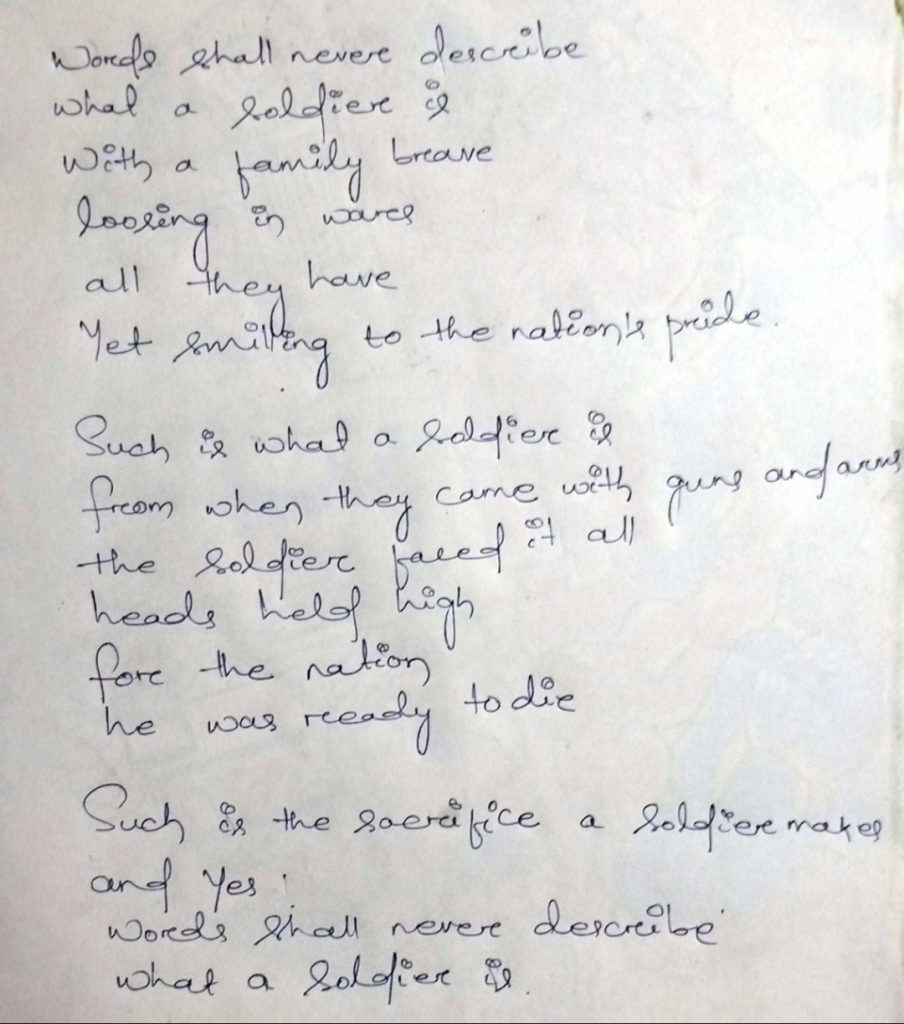 Words shall never describe
what a soldier is
With a family brave
loosing in wars
all they have
Yet smiling to the nation's pride.
Such is what a soldier is
from when they came with guns and arms
the soldier faced it all
heads held high
for the nation
he was ready to die
Such is the sacrifice a soldier makes
and Yes
Words shall never describe
what a soldier is.